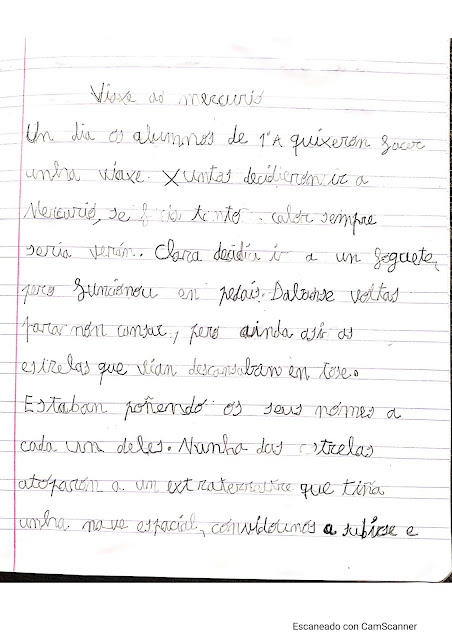 Viaxe ao mercurio
Un dia os alumnos de 1ºA quixeron facer
unha viaxe. Xuntos decidieron ir a
Mercurio, se facia tanto calor sempre
seria verán. Clara decidiu ir a un foguete,
pero funcionou en pedais. Daban voltas
para non cansar, pero ainda asi as
estrelas que vian descansaban en
Estaban poñendo os seus nomes a
cada un deles. Nunha das estrelas
atoparon a un extraterrestre que tiña
unha nave espacial, convidounos a subirse e
Escaneado con CamScanner